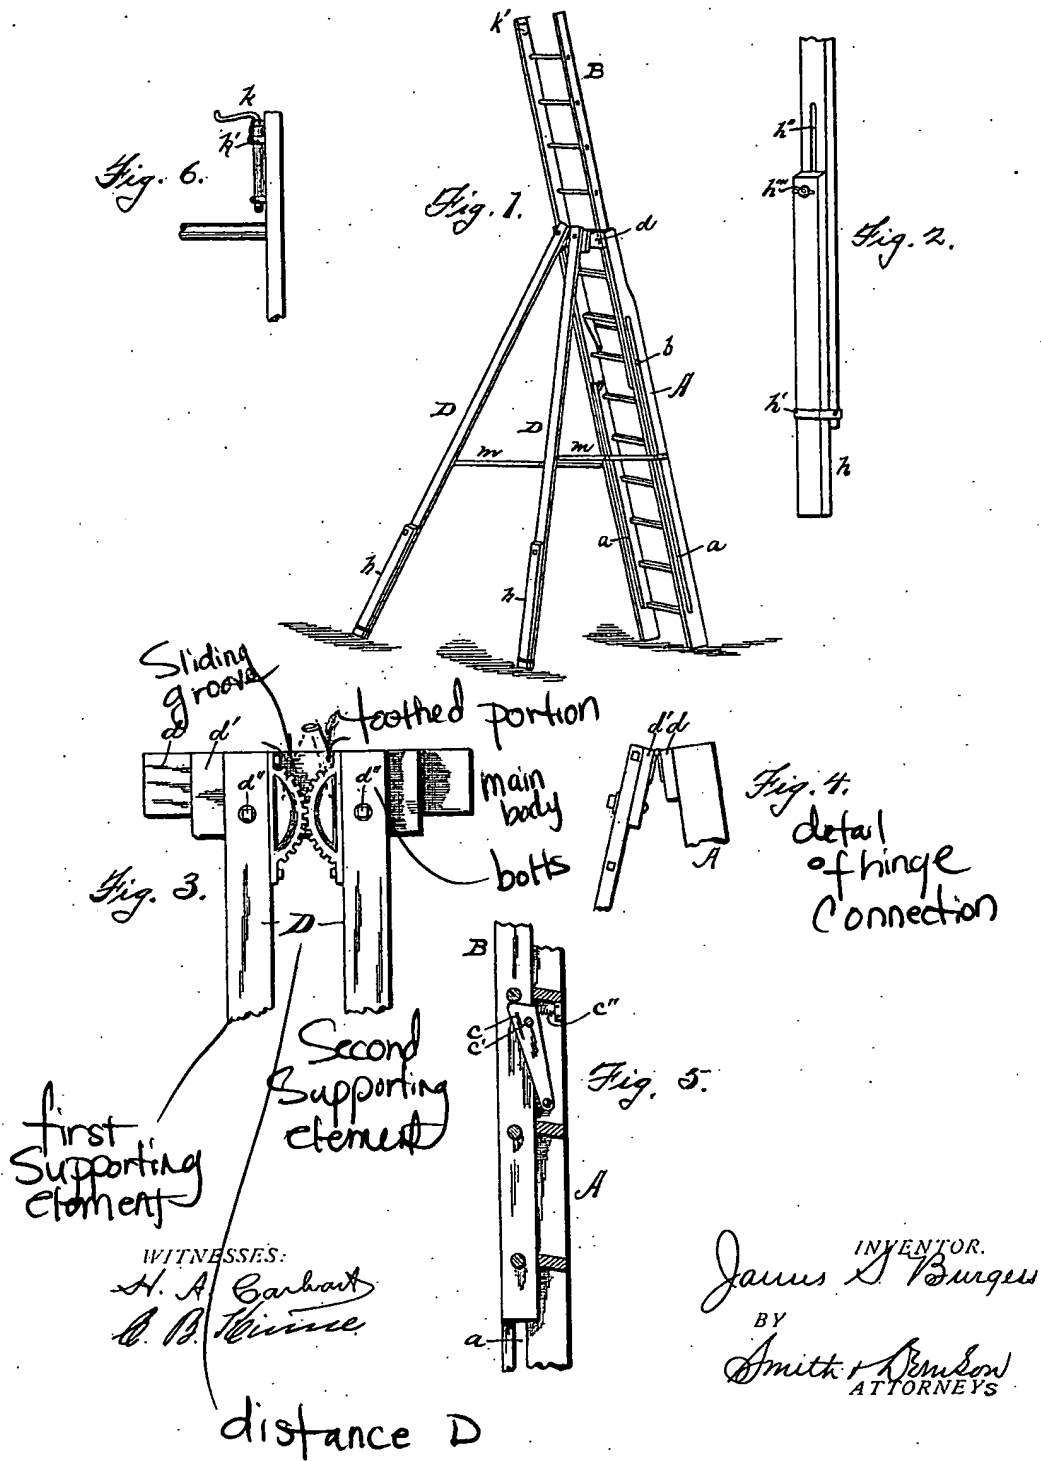 k'
B
k
k'
Fig. 6.
Fig. 1.
d
h"
h'''
Fig. 2.
b
A
D
D
m
m
h'
h
a
a
h
h
Sliding
groove
toothed portion
d
d'
d"
d"
main
body
bolts
Fig. 3.
D
d'd
Fig. 4.
A
detail
of hinge
Connection
B
c
c'
c"
Fig. 5.
A
a
Second
Supporting
element
first
Supporting
element
WITNESSES:
H. A. Carhart
C. B. Kinne
INVENTOR.
James S. Burgess
BY
Smith & Denison
ATTORNEYS
distance D